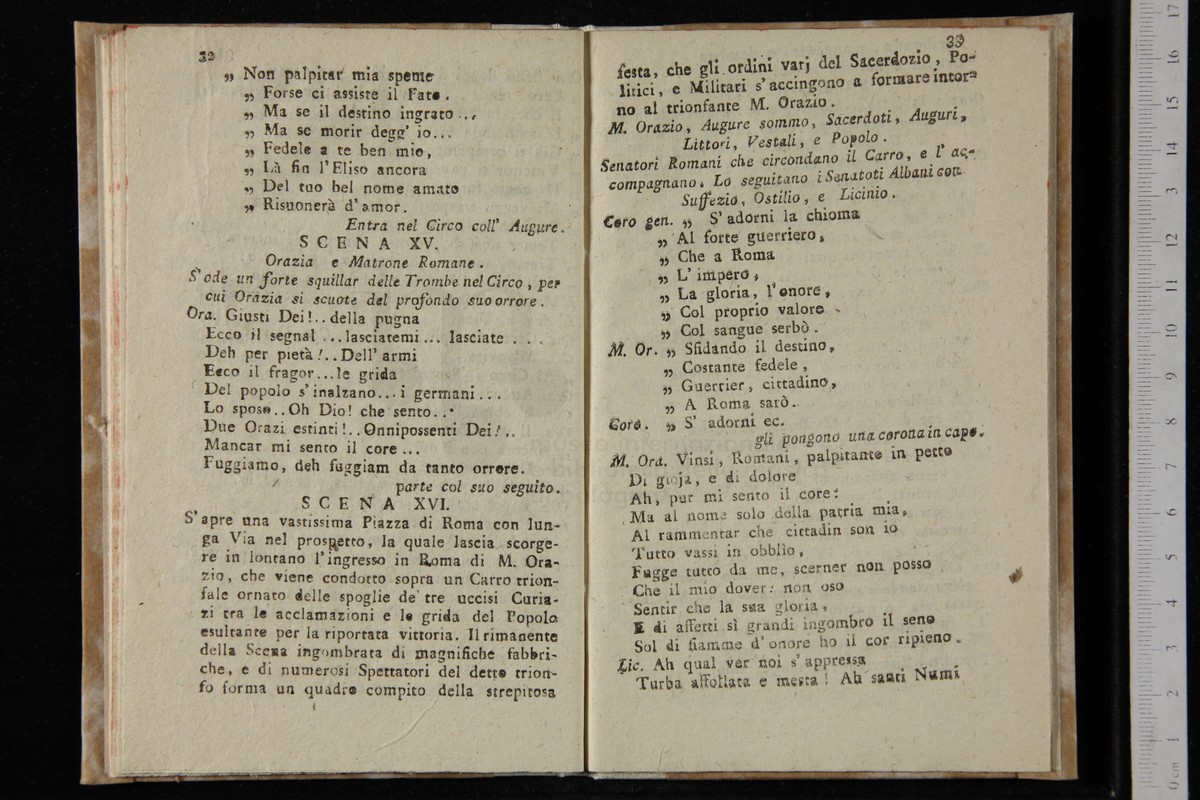 32
„ Non palpitar mia speme
„ Forse ci assiste il Fato.
„ Ma se il destino ingrato...
„ Ma se morir degg' io...
„ Fedele a te ben mio,
„ Là fin l'Eliso ancora
„ Del tuo bel nome amato
„ Risuonerà d'amor.
Entra nel Circo coll' Augure.
SCENA XV.
Orazia e Matrone Romane.
S'ode un forte squillar delle Trombe nel Circo, per
cui Orazia si scuote dal profondo suo orrore.
Ora. Giusti Dei!..della pugna
Ecco il segnal ...lasciatemi... lasciate ...
Deh per pietà!..Dell' armi
Ecco il fragor...le grida
Del popolo s'inalzano...i germani...
Lo sposo..Oh Dio! che sento...
Due Orazi estinti!..Onnipossenti Dei!..
Mancar mi sento il core ...
Fuggiamo, deh fuggiam da tanto orrore.
parte col suo seguito.
SCENA XVI.
S'apre una vastissima Piazza di Roma con lun-
ga Via nel prospetto, la quale lascia scorge-
re in lontano l'ingresso in Roma di M. Ora-
zio, che viene condotto sopra un Carro trion-
fale ornato delle spoglie de' tre uccisi Curia-
zi tra le acclamazioni e le grida del Popolo
esultante per la riportata vittoria. Il rimanente
della Scena ingombrata di magnifiche fabbri-
che, e di numerosi Spettatori del detto trion-
fo forma un quadro compito della strepitosa
33
festa, che gli ordini varj del Sacerdozio, Po-
litici, e Militari s'accingono a formare intor-
no al trionfante M. Orazio.
M. Orazio, Augure sommo, Sacerdoti, Auguri,
Littori, Vestali, e Popolo.
Senatori Romani che circondano il Carro, e l' ac-
compagnano. Lo seguitano i Senatoti Albani con
Suffezio, Ostilio, e Licinio.
Coro gen. „ S'adorni la chioma
„ Al forte guerriero,
„ Che a Roma
„ L'impero,
„ La gloria, l'onore,
„ Col proprio valore
„ Col sangue serbò.
M. Or. „ Sfidando il destino,
„ Costante fedele,
„ Guerrier, cittadino,
„ A Roma sarò.
Coro. „ S' adorni ec.
gli pongono una corona in capo.
M. Ora. Vinsi, Romani, palpitante in petto
Di gioja, e di dolore
Ah, pur mi sento il core:
Ma al nome solo della patria mia,
Al rammentar che cittadin son io
Tutto vassi in obblìo,
Fugge tutto da me, scerner non posso
Che il mio dover: non oso
Sentir che la sua gloria,
E di affetti sì grandi ingombro il seno
Sol di fiamme d'onore ho il cor ripieno.
Lic. Ah qual ver noi s'appressa
Turba affollata e mesta! Ah santi Numi
17
16
15
14
13
12
11
10
9
8
7
6
5
4
3
2
1
0 cm